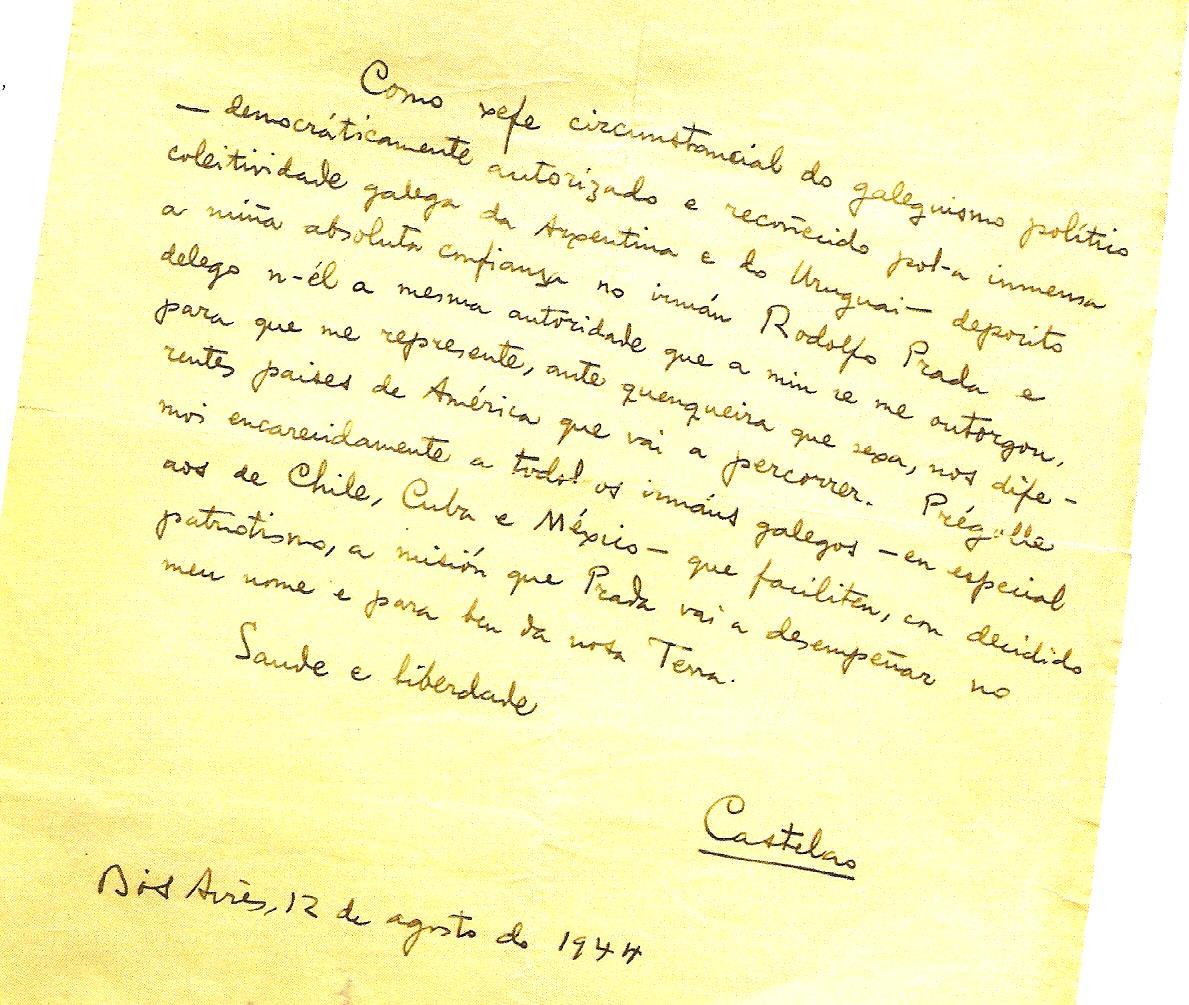 Como xefe circumstancial do galeguismo político
— democráticamente autorizado e recoñecido pol-a inmensa
coleitividade galega da Arxentina e do Uruguai — deposito
a miña absoluta confianza no irmán Rodolfo Prada e
delego n-él a mesma autoridade que a min se me outorgou,
para que me represente, ante quenqueira que sexa, nos dife-
rentes paises de América que vai a percorrer. Prégolle
moi encarecidamente a todol-os irmáns galegos — en especial
aos de Chile, Cuba e México — que faciliten, con decidido
patriotismo, a misión que Prada vai a desempeñar no
meu nome e para ben da nosa Terra.
Saude e liberdade
Castelao
Bós Aires, 12 de agosto do 1944